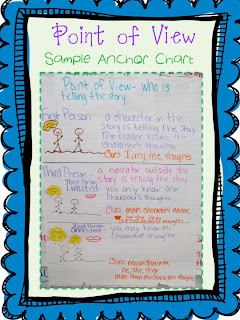 Point of View
Sample Anchor Chart
Point of View- who is
telling the story
First Person- a character in the
story is telling the story
The reader knows
character's thoughts
Clues: I, my, me, thoughts
Third Person- a narrator outside the
story is telling the story
Third Person
Limited- you only know one
character's thoughts
Clues: main character's name,
thoughts
Third Person
Omniscient- you may know all
character's thoughts
Clues: 
he, she, they
more than one character's thoughts